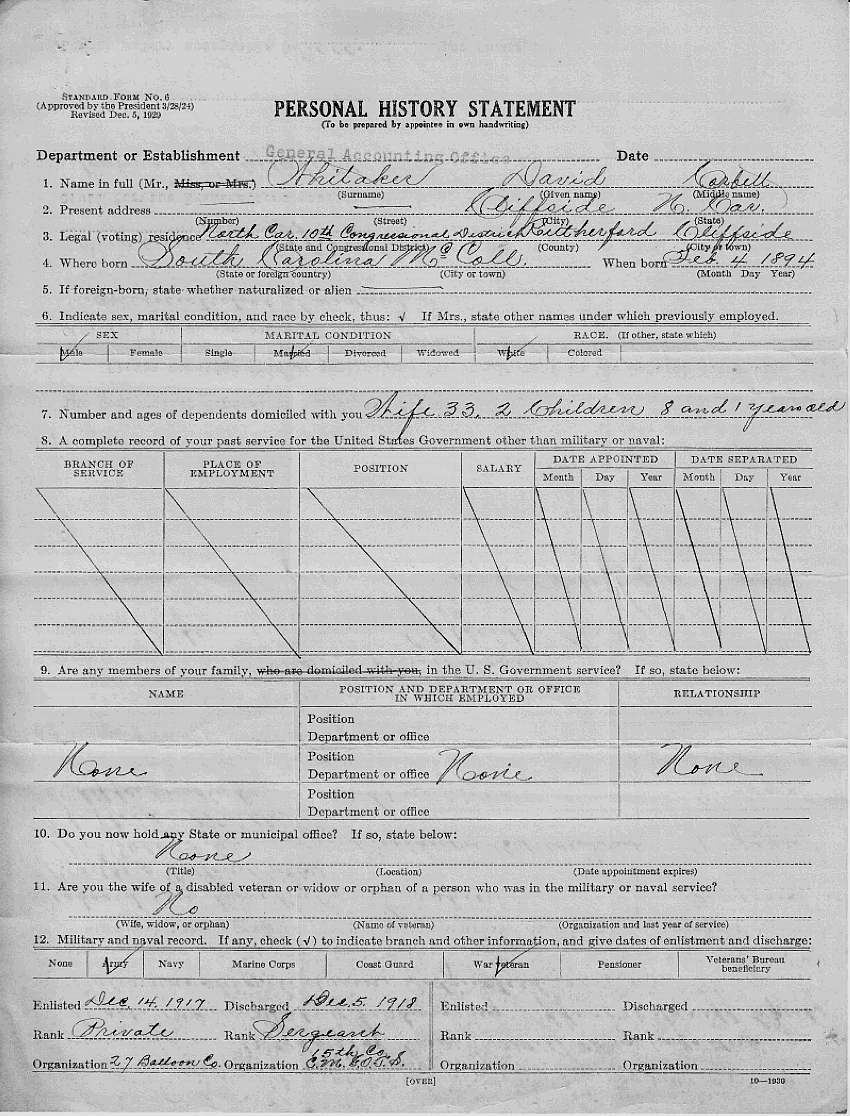 STANDARD FORM NO. 6
(Approved by the President 3/28/24)
Revised Dec. 5, 1929
PERSONAL HISTORY STATEMENT
(To be prepared by appointee in own handwriting)
Department or Establishment General Accounting Office Date
1. Name in full (Mr., Miss, or Mrs.) Whitaker David Corbett
(Surname) (Given name) (Middle name)
2. Present address Cliffside N. Car.
(Number) (Street) (City) (State)
3. Legal (voting) residence North Car. 10th Congressional District Rutherford Cliffside
(State and Congressional District) (County) (City or town)
4. Where born South Carolina McColl. When born Feb. 4 1894
(State or foreign country) (City or town) (Month Day Year)
5. If foreign-born, state whether naturalized or alien
6. Indicate sex, marital condition, and race by check, thus: √ If Mrs., state other names under which previously employed.
SEX MARITAL CONDITION RACE. (If other, state which)
Male Female Single Married Divorced Widowed White Colored
7. Number and ages of dependents domiciled with you Wife 33, 2 Children 8 and 1 years old
8. A complete record of your past service for the United States Government other than military or naval:
BRANCH OF SERVICE PLACE OF EMPLOYMENT POSITION SALARY DATE APPOINTED DATE SEPARATED
Month Day Year Month Day Year
9. Are any members of your family, who are domiciled with you, in the U. S. Government service? If so, state below:
NAME POSITION AND DEPARTMENT OR OFFICE IN WHICH EMPLOYED RELATIONSHIP
Position
Department or office
Position
None Department or office None None
Position
Department or office
10. Do you now hold any State or municipal office? If so, state below:
None
(Title) (Location) (Date appointment expires)
11. Are you the wife of a disabled veteran or widow or orphan of a person who was in the military or naval service?
No
(Wife, widow, or orphan) (Name of veteran) (Organization and last year of service)
12. Military and naval record. If any, check (√) to indicate branch and other information, and give dates of enlistment and discharge:
None Army Navy Marine Corps Coast Guard War veteran Pensioner Veterans' Bureau beneficiary
Enlisted Dec. 14. 1917 Discharged Dec. 5. 1918 Enlisted Discharged
Rank Private Rank Sergeant Rank Rank
15th Co.
Organization 27 Balloon Co. Organization C.M.C.O.T.S. Organization Organization
[OVER] 10—1930